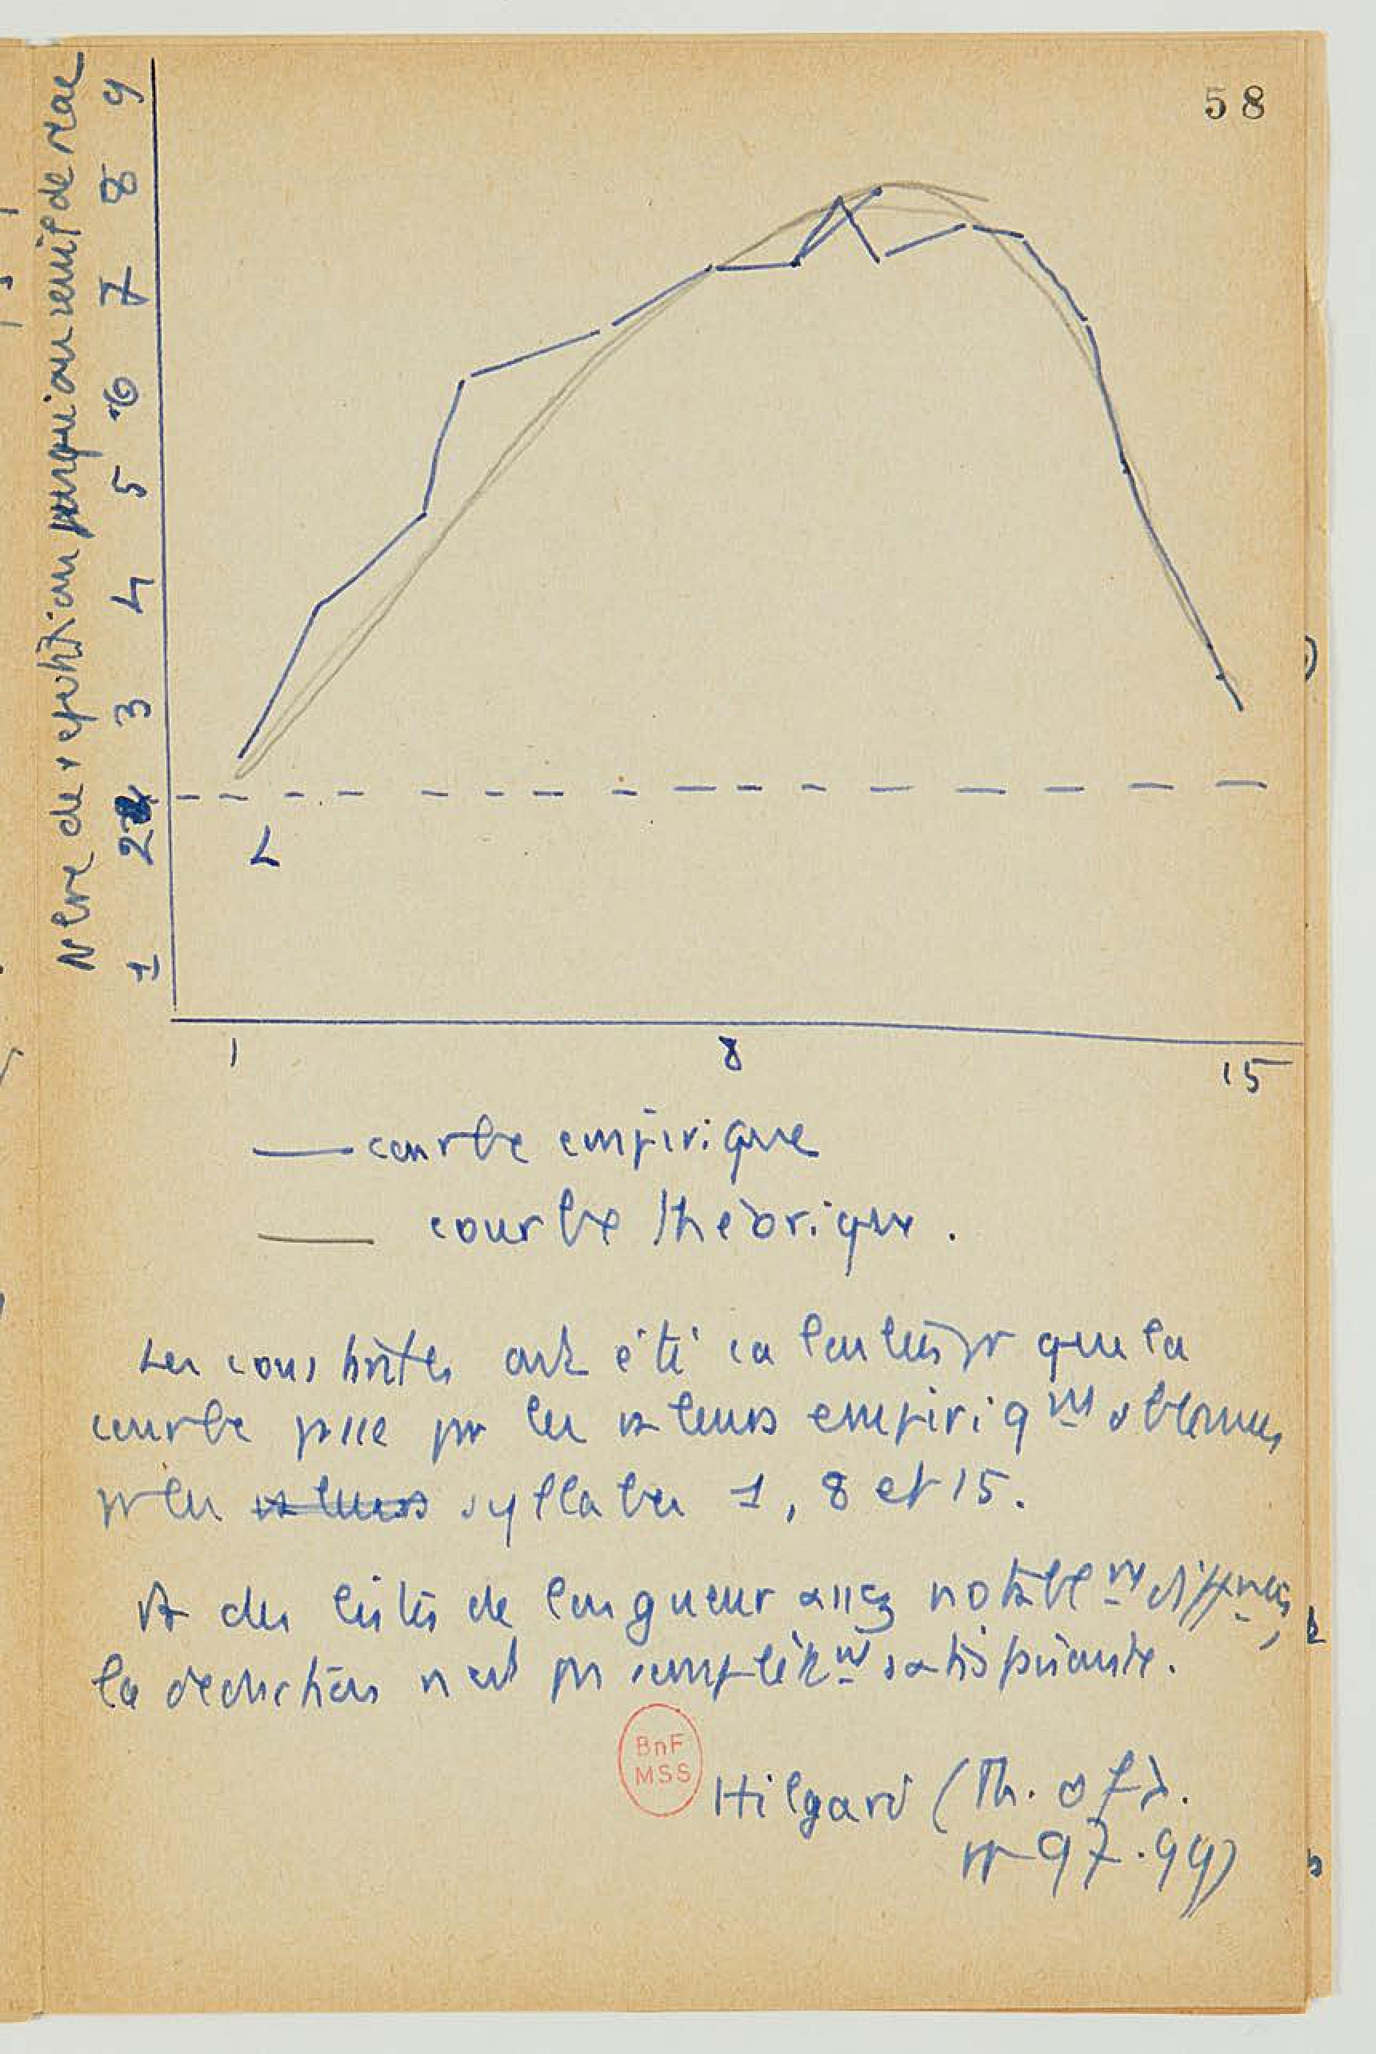 58
Nbre de répétitions jusqu'au seuil de réac
9
8
7
6
5
4
3
2
1
L
1 8 15
courbe empirique
courbe théorique.
Les constantes ont été calculées pr que la
courbe passe par les valeurs empiriques obtenues
pr les valeurs syllabes 1, 8 et 15.
A des listes de longueur assez notablemt différentes,
la déduction n'est pas complètemt satisfaisante.
BnF
MSS
Hilgard (Th. of L.
pp 97.99)